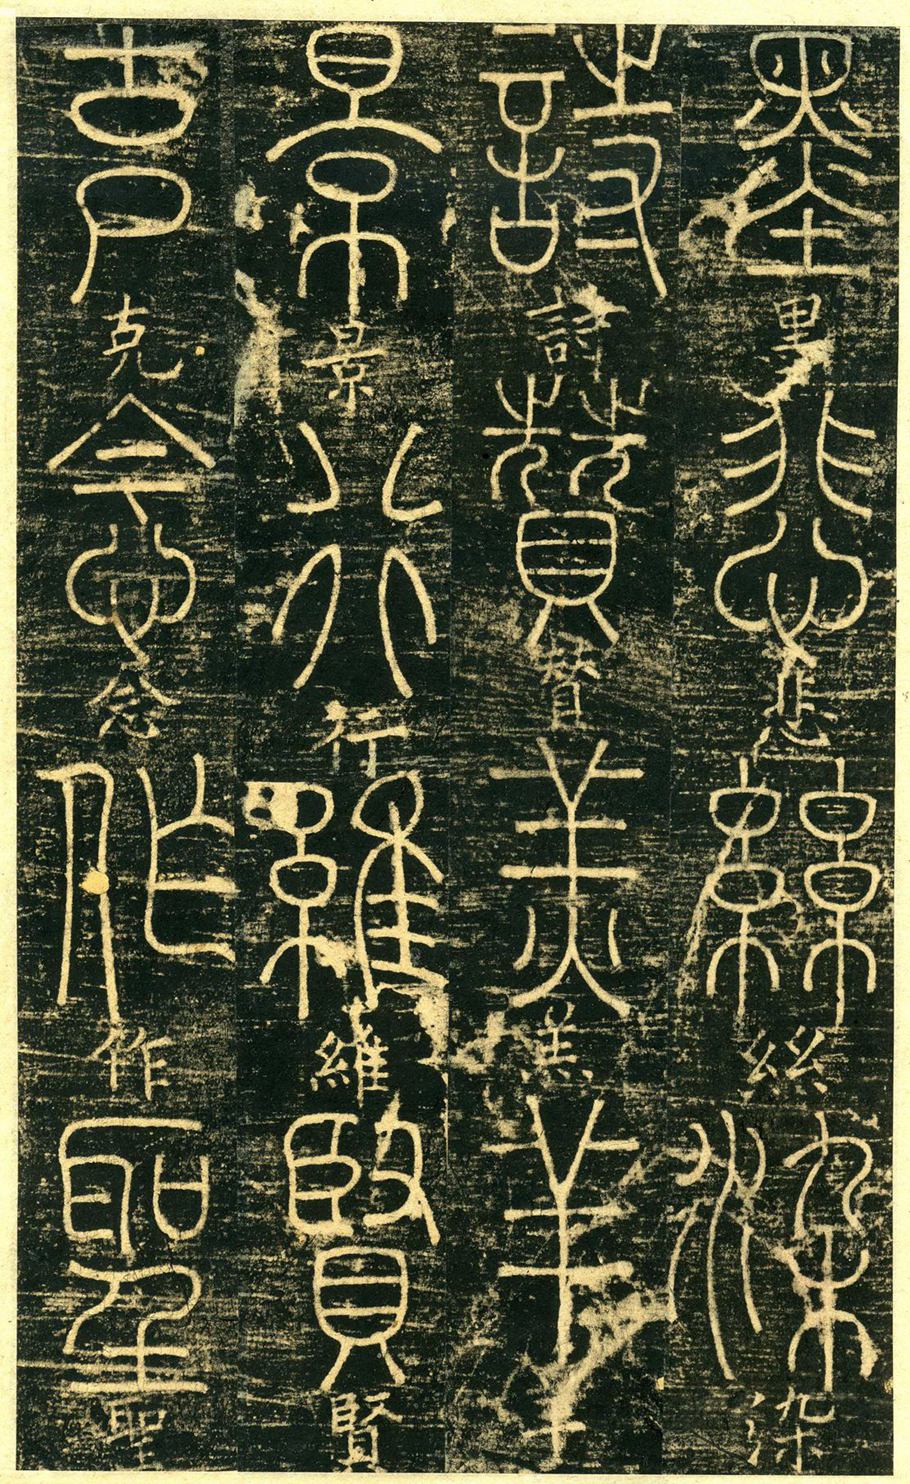 墨墨悲悲絲絲染染
詩詩贊賛羔羔羊羊
景景行行維維賢賢
克克念念作作聖聖